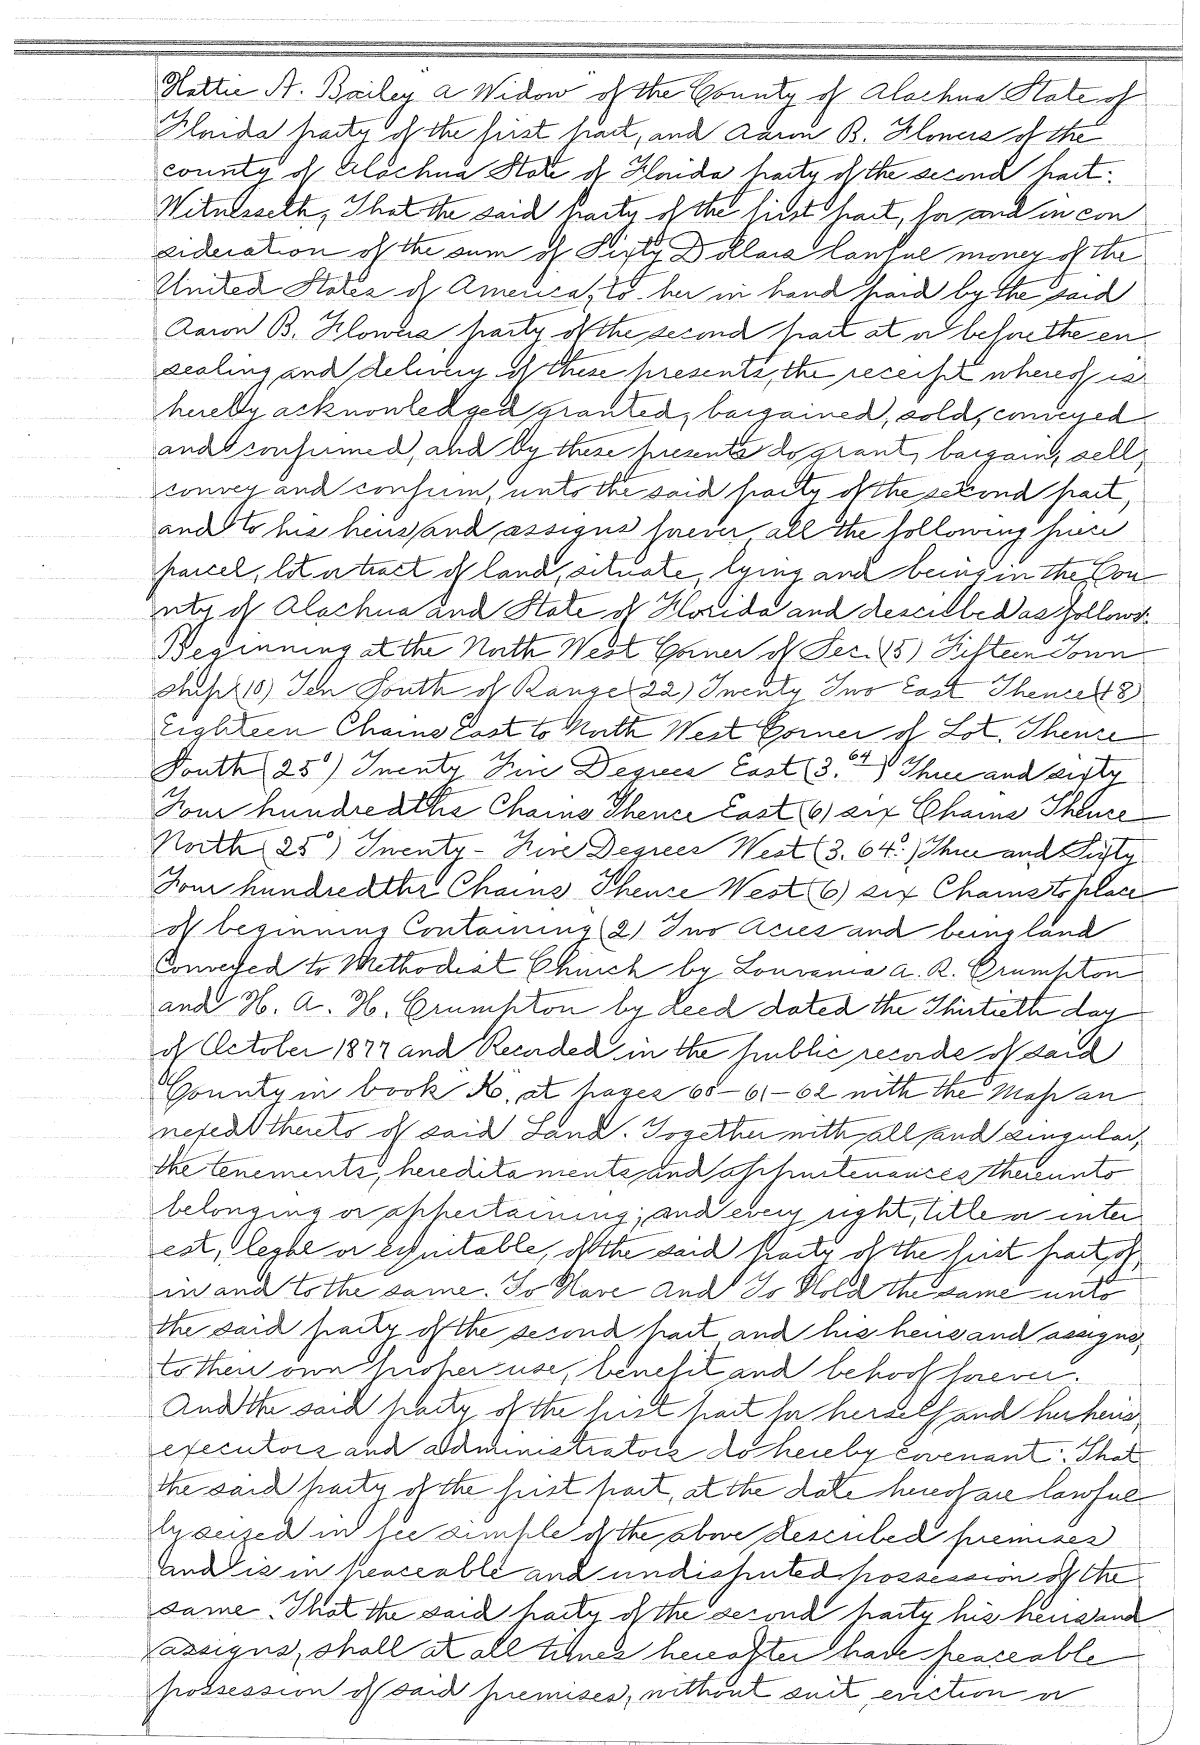 Hattie A. Bailey "a Widow" of the County of Alachua State of
Florida party of the first part, and Aaron B. Flowers of the
county of Alachua State of Florida party of the second part:
Witnesseth, That the said party of the first part, for and in con
sideration of the sum of Sixty Dollars lawful money of the
United States of America, to her in hand paid by the said
Aaron B. Flowers party of the second part at or before the en
sealing and delivery of these presents, the receipt whereof is
hereby acknowledged granted, bargained, sold, conveyed
and confirmed, and by these presents do grant, bargain, sell,
convey and confirm, unto the said party of the second part,
and to his heirs and assigns forever, all the following piece
parcel, lot or tract of land, situate, lying and being in the Cou
nty of Alachua and State of Florida and described as follows:
Beginning at the North West Corner of Sec. (15) Fifteen Town
ship (10) Ten South of Range (22) Twenty Two East Thence (18)
Eighteen Chains East to North West Corner of Lot. Thence
South (25°) Twenty Five Degrees East (3.64) Three and sixty
Four hundredths Chains Thence East (6) six Chains Thence
North (25°) Twenty-Five Degrees West (3.64) Three and Sixty
Four hundredths Chains Thence West (6) six Chains to place
of beginning Containing (2) Two Acres and being land
Conveyed to Methodist Church by Louvania A. R. Crumpton
and H. A. H. Crumpton by deed dated the Thirtieth day
of October 1877 and Recorded in the public records of said
County in book "K" at pages 60-61-62 with the Map an
nexed thereto of said Land. Together with all and singular,
the tenements, heredita ments and appurtenances thereunto
belonging or appertaining; and every right, title or inter
est, legal or equitable, of the said party of the first part, of,
in and to the same. To Have And To Hold the same unto
the said party of the second part and his heirs and assigns,
to their own proper use, benefit and behoof forever.
And the said party of the first part for herself and her heirs,
executors and administrators do hereby covenant: That
the said party of the first part, at the date hereof are lawful
ly seized in fee simple of the above described premises
and is in peaceable and undisputed possession of the
same. That the said party of the second party his heirs and
assigns, shall at all times hereafter have peaceable
possession of said premises, without suit, eviction or